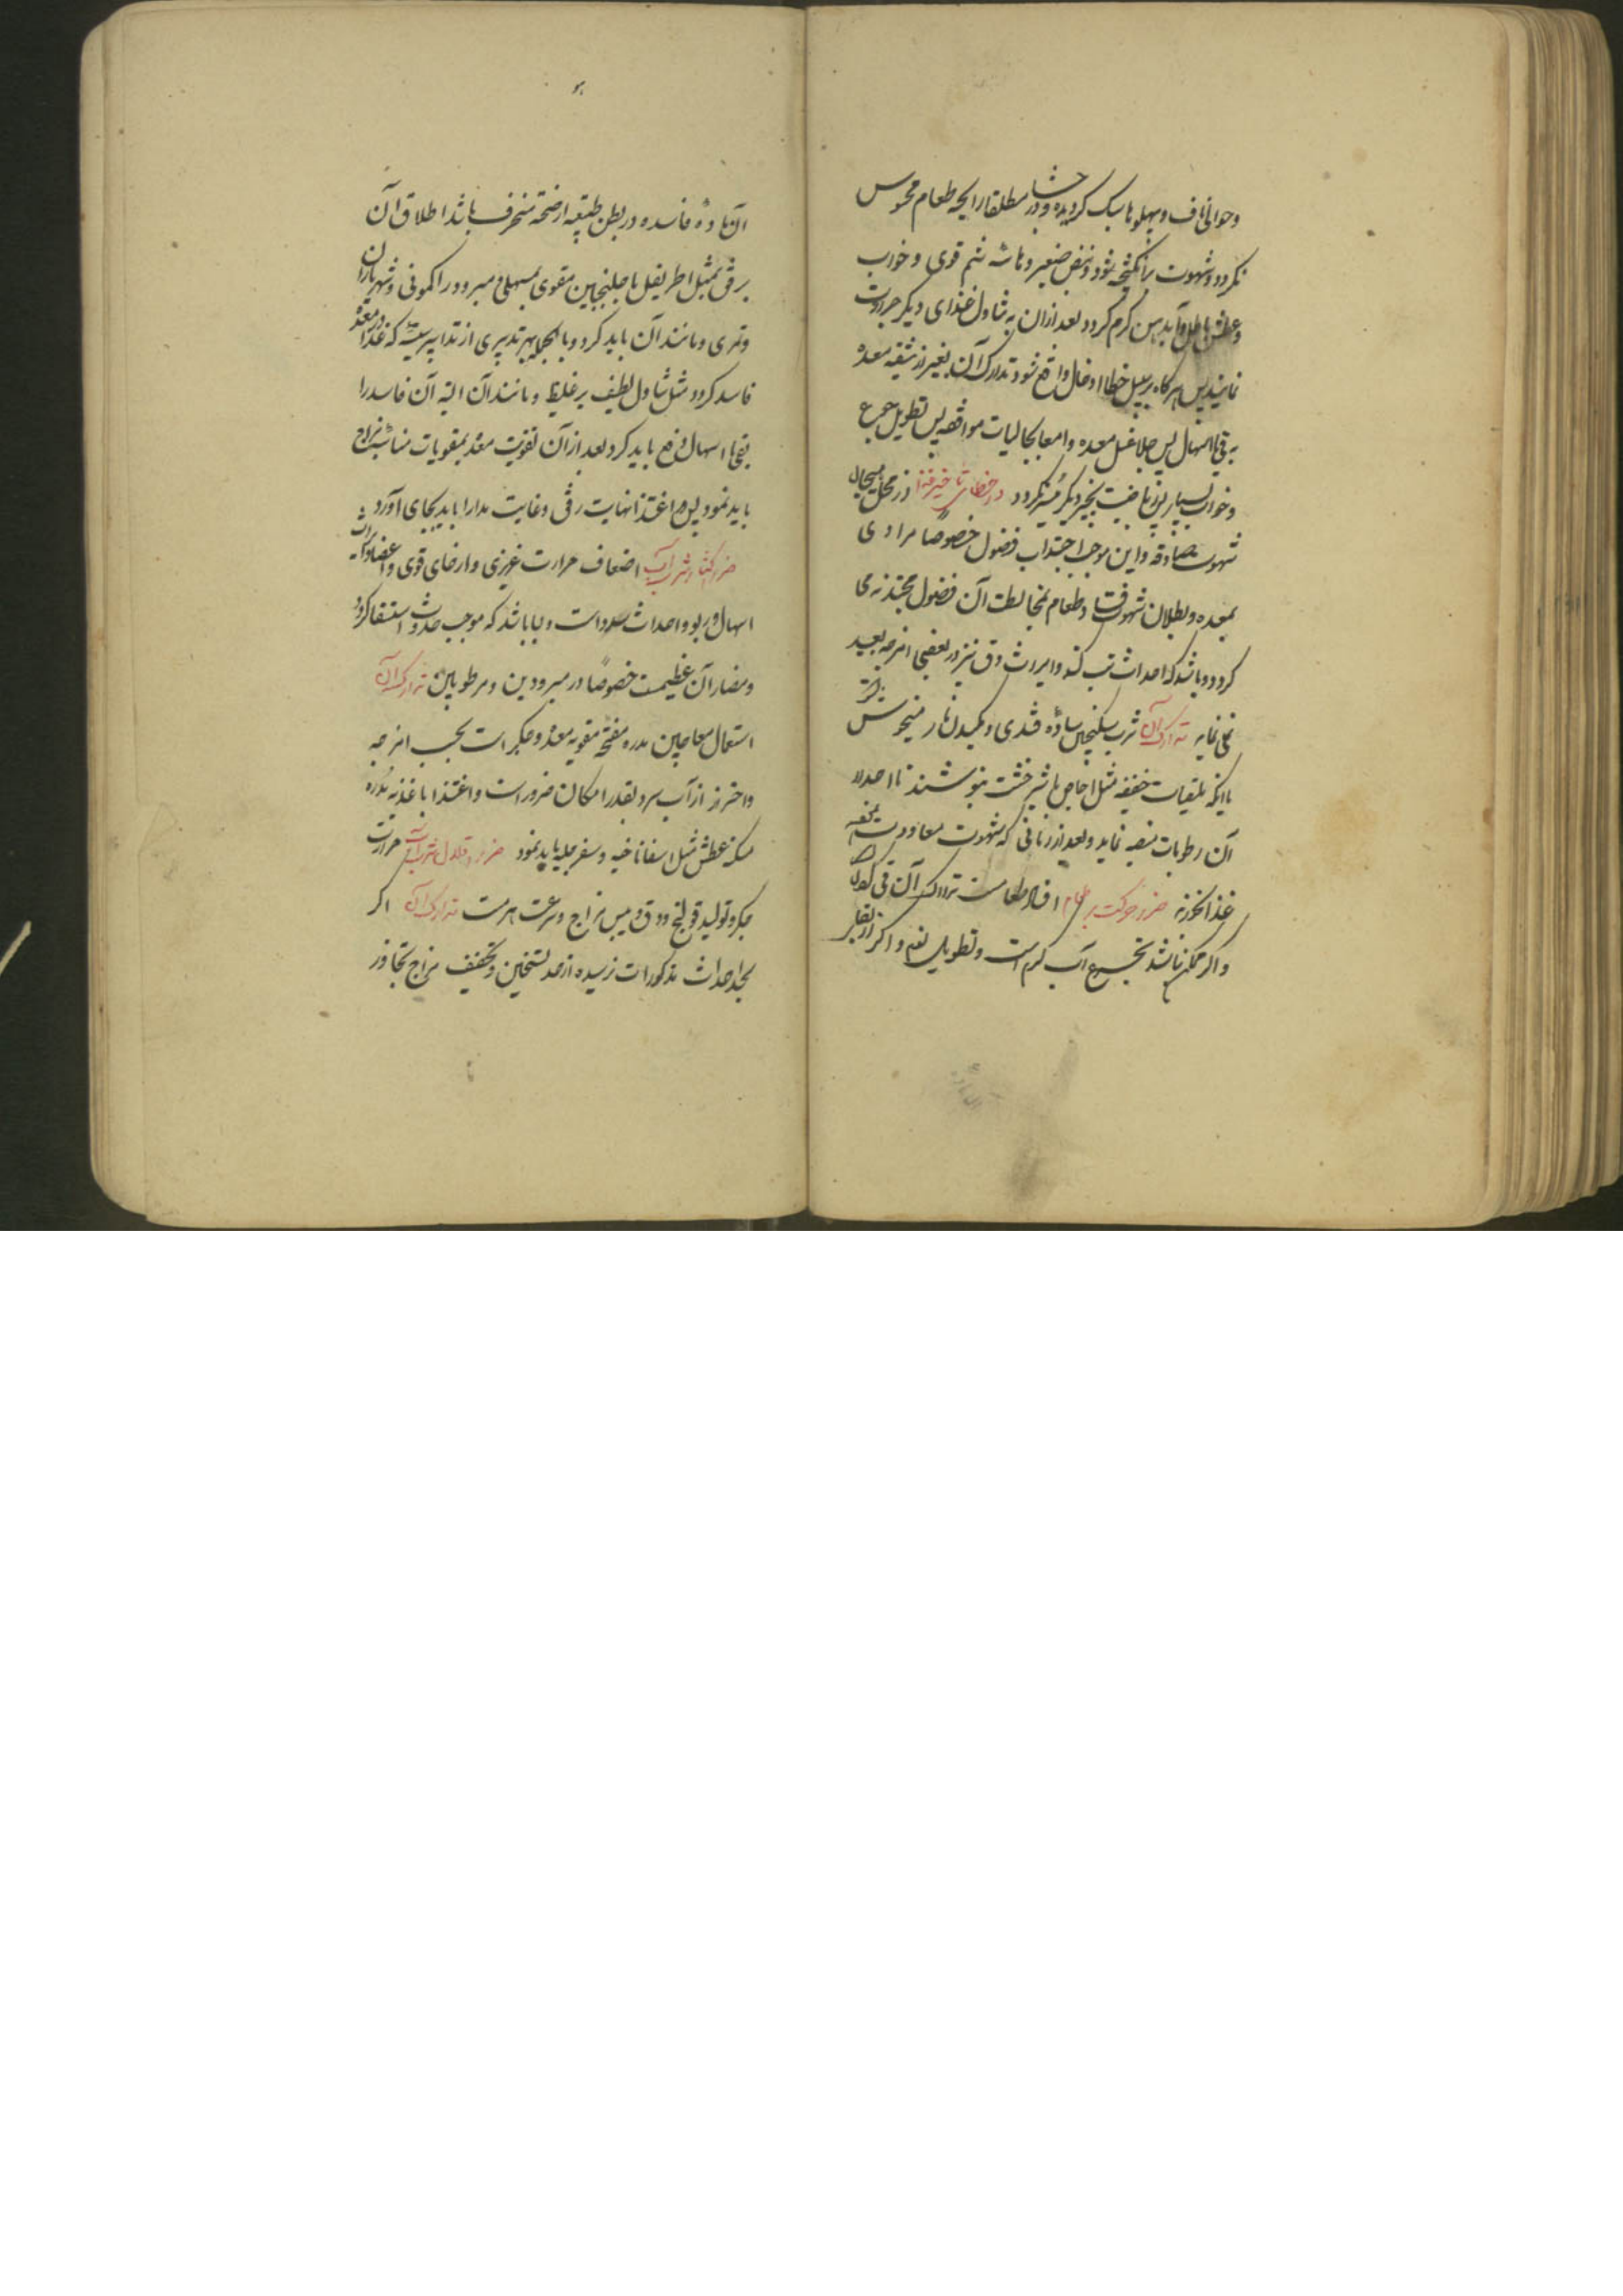 وحوالی ناف و پهلوها سبک کردیده و در جشا مطلقا رایحه طعام محسوس
نکردد و شهوت برانکیخته شود و نبض صغیر و قوی و خواب
و عطش باطل و آید بدن کرم کردد بعد ازان به تناول غذای دیکر جرات
نمایند پس هرکاه بر سبیل خطا ادخال واقع شود تدارک آن بغیر از تنقیه معده
به قی یا اسهال پس غسل معده و امعا بجالیات موافقه پس تطویل جوع
و خواب بسیار و ریاضت بچیز دیکر میسر نکردد در خطای تاخیر غذا از محل
شهوت صادقه و این موجب اجتذاب فضول خصوصا مراری
بمعده و بطلان شهوت و فساد طعام بمخالطت آن فضول مجتذبه می
کردد و باشد که احداث تب کند و ایراث دق نیز در بعضی امزجه بعید
نمی نماید تدارک آن شرب سکنجبین ساده قندی و مکیدن انار میخوش
یا آنکه ملینات خفیفه مثل اجاص با شیرخشت بنوشند تا
آن رطوبات تنقیه نماید و بعد از زمانی که شهوت معاودت
غذا نخورند ضرر حرکت بر طعام افساد طعام است تدارک آن قی کردن
و اکر ممکن نباشد تجرع آب کرم است و تطویل نوم و اکر از
آن ماده فاسده در بطن طبیعه از صحه منحرف باشد اطلاق آن
برفق بمثل اطریفل یا جلنجبین مقوی بمسهلی مبرود را کمونی و شهریاران
و تمری و مانند آن باید کرد و بالجمله بهر تدبیری از تدابیر سیئه که غذا در معده
فاسد کردد مثل تناول لطیف بر غلیظ و مانند آن البته آن فاسد را
بقی یا اسهال دفع باید کرد بعد از آن تقویت معده بمقویات مناسبه مزاج
باید نمود پس در اغتذا نهایت رفق و غایت مدارا باید بجای آورد
ضرر اکثار شرب آب اضعاف حرارت غریزی و ارخای قوی و اعضا و ایراث
اسهال و ربو و احداث سدد است و بسا باشد که موجب حدوث استسقا کردد
و مضار آن عظیمست خصوصا در مبرودین و مرطوبین تدارک آن
استعمال معاجین مدره مفتحه مقویه معده و جکر است بحسب امزجه
و احتراز از آب سرد بقدر امکان ضرور است و اغتذا باغذیه مدره
مسکنه عطش مثل اسفاناخیه و سفرجلیه باید نمود ضرر اقلال شرب آب حرارت
جکر و تولید قولنج و دق و یبس مزاج و سرعت هرمست تدارک آن اکر
بحد احداث مذکورات نرسیده از حد تسخین و تجفیف مزاج تجاوز